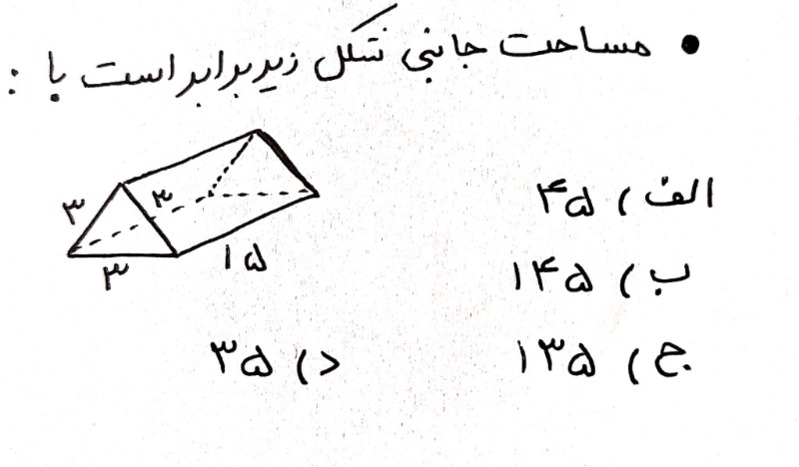 • مساحت جانبی شکل زیر برابر است با :
الف) ۴۵
۳ ۳
۳ ۱۵
ب) ۱۴۵
ج) ۱۳۵ د) ۳۵